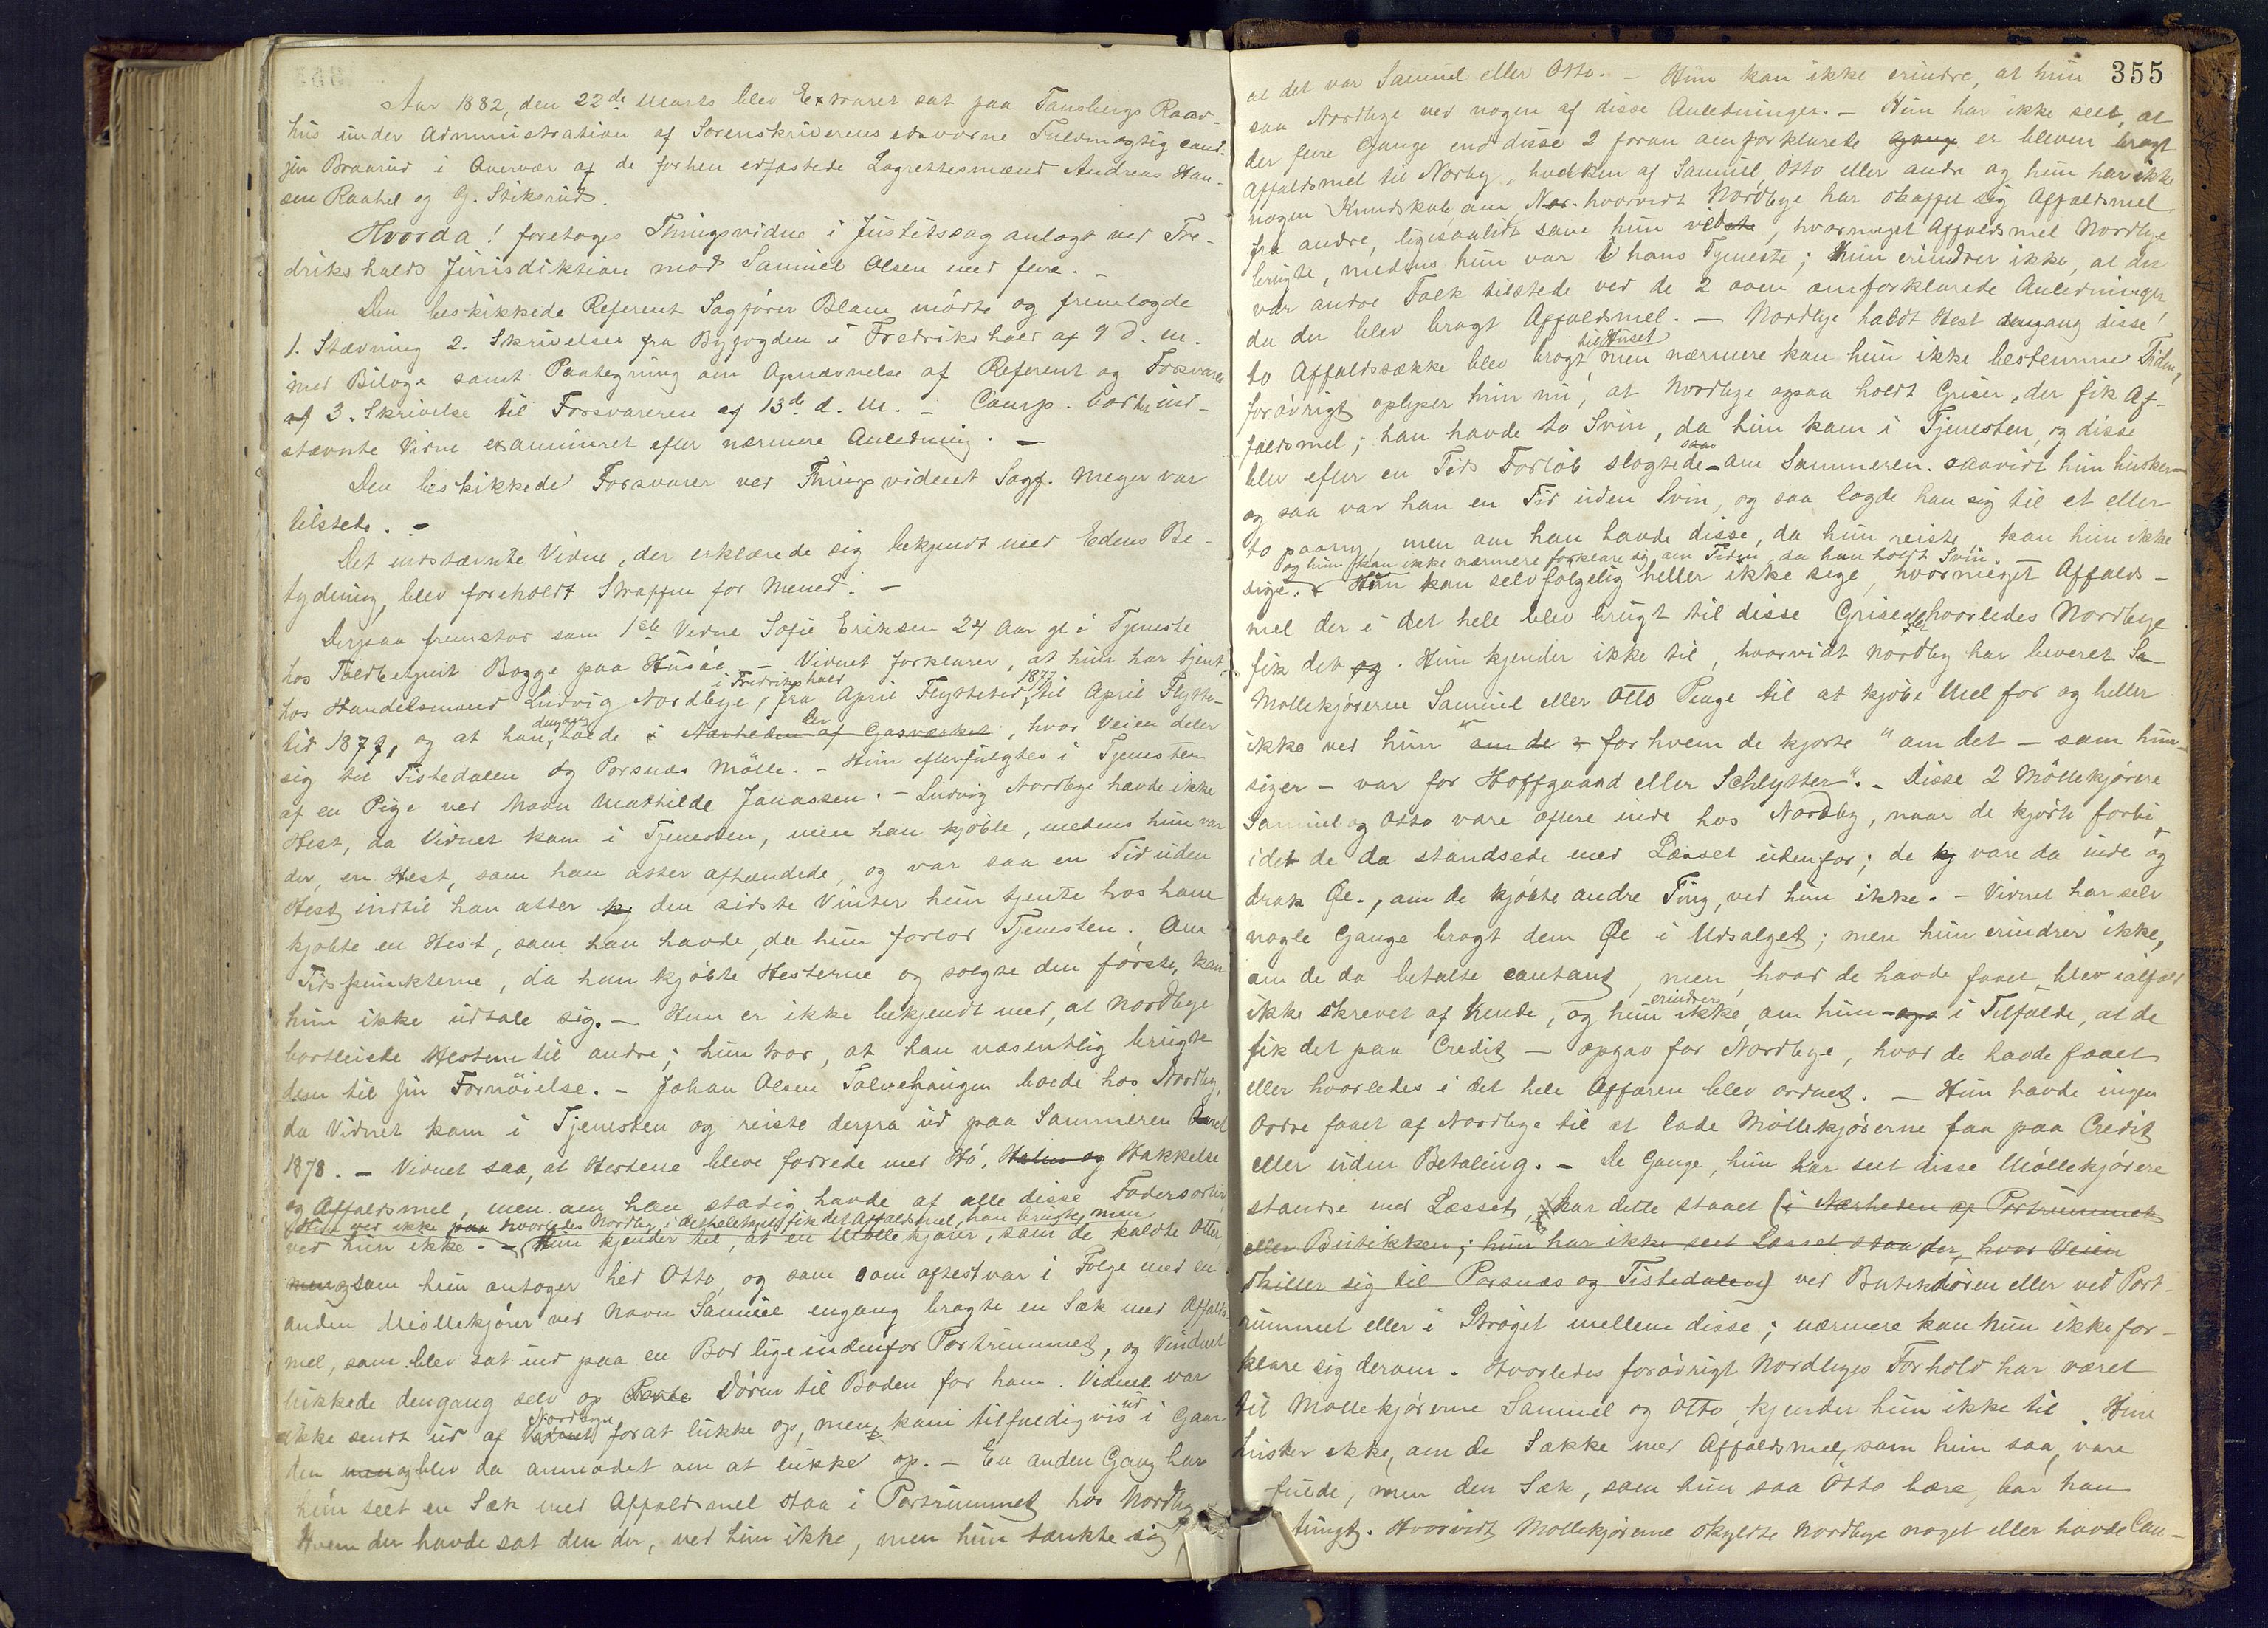 Aar 1882, den 22de Marts blev Extraret sat paa Tønsbergs Raad-
hus under Administration af Sorenskriverens edsvorne Fuldmægtig cand.
jur Braarud i Overvær af de forhen edfæstede Lagrettesmænd Andreas Han-
sen Raahel og G. Stiksrud.
Hvorda! foretoges Thingsvidne i Justitssag anlagt ved Fre-
drikshalds Jurisdiktion mod Samuel Olsen med flere. -
Den beskikkede Referent Sagfører Blom mødte og fremlagde
1. Stævning 2. Skrivelse fra Byfogden i Fredrikshald af 9 d. m.
med Bilage samt Paategning om Opnævnelse af Referent og Forsvarer
af 3. Skrivelse til Forsvareren af 13de d. M. - Comp. bad ind-
stævnte Vidne examineret efter nærmere Anledning. -
Den beskikkede Forsvarer ved Thingsvidnet Sagf. Meyer var
tilstede. -
Det indstævnte Vidne, der erklærede sig bekjendt med Edens Be-
tydning, blev foreholdt Straffen for Mened. -
Derpaa fremstod som 1ste Vidne Sofie Eriksen 24 Aar gl i Tjeneste
hos Toldbetjent Bugge paa Husøe. - Vidnet forklarer, at hun har tjent
i Fredrikshald 1877
hos Handelsmand Ludvig Nordbye, fra April Flyttetid, til April Flytte-
tid 1879, og at han dengang boede i Nærheden af Gasværket, hvor Veien deler
sig til Tistedalen og Porsnæs Mølle. - Hun efterfulgtes i Tjenesten
af en Pige ved Navn Mathilde Jonassen. - Ludvig Nordbye havde ikke
Hest, da Vidnet kom i Tjenesten, men han kjøbte, medens hun var
der, en Hest, som han atter afhændede, og var saa en Tid uden
Hest, indtil han atter kj den sidste Vinter hun tjente hos ham
kjøbte en Hest, som han havde, da hun forlod Tjenesten. Om
Tidspunkterne, da han kjøbte Hesterne og solgte den første, kan
hun ikke udtale sig. - Hun er ikke bekjendt med, at Nordbye
bortleiede Hestene til andre; hun tror, at han væsentlig brugte
dem til sin Fornøielse. - Johan Olsen boede hos Nordby,
da Vidnet kom i Tjenesten og reiste derfra ud paa Sommeren Aaret
1878. - Vidnet saa, at Hestene bleve foirede med Hø, Halm og Hakkelse
og Affaldsmel, men om han stadig havde af alle disse Fodersorter,
Hun ved ikke paa hvorledes Nordby i det hele taget fik det Affaldsmel, han brugte, men
ved hun ikke. - Hun kjender til, at en Møllekjører, som de kaldte Otter,
men og som hun antager hed Otto, og som som oftest var i Følge med en
anden Møllekjører ved Navn Samuel engang bragte en Sæk med Affalds-
mel, som blev sat ind paa en Bod lige indenfor Portrummet, og Vindnet
lukkede dengang selv op Porte Døren til Boden for ham. Vidnet var
Nordbye ud
ikke sendt ud af Vidnet for at lukke op, men kom tilfældigvis i Gaar-
den men og blev da anmodet om at lukke op. - En anden Gang har
hun seet en Sæk med Affaldsmel staa i Portrummet hos Nordby
Hvem der havde sat den der, ved hun ikke, men hun tænkte sig
355
at det var Samuel eller Otto. - Hun kan ikke erindre, at hun
saa Nordbye ved nogen af disse Anledninger. - Hun har ikke seet, at
der flere Gange end disse 2 foran omforklarede Gang er bleven bragt
Affaldsmel til Norby, hverken af Samuel Otto eller andre og hun har ikke
nogen Kundskab om Nor- hvorvidt Nordbye har skaffet sig Affaldsmel
fra andre, ligesaalidt som hun vidste, hvormeget Affaldsmel Nordbye
brugte, medens hun var i hans Tjeneste; Hun erindrer ikke, at der
var andre Folk tilstede ved de 2 oven omforklarede Anledninger,
da der blev bragt Affaldsmel. - Nordbye holdt Hest dengang disse
til Huset
to Affaldssække blev bragt men nærmere kan hun ikke bestemme Tiden,
forøvrigt oplyser hun nu, at Nordbye ogsaa holdt Griser, der fik Af-
faldsmel; han havde to Svin, da hun kom i Tjenesten, og disse
blev efter en Tids Forløb slagtede - om Sommeren. saavidt hun husker -
og saa var han en Tid uden Svin, og saa lagde han sig til et eller
to paany, men om han havde disse, da hun reiste, kan hun ikke
og hun kan ikke nærmere forklare sig om Tiden, da han holdt Svin.
sige. Hun kan selvfølgelig heller ikke sige, hvormeget Affalds-
mel der i det hele blev brugt til disse Grise eller hvorledes Nordbye
fik det og. Hun kjender ikke til, hvorvidt Nordby har leveret Sa-
Møllekjørerne Samuel eller Otto Penge til at kjøbe Mel for og heller
ikke ved hun om de for hvem de kjørte "om det - som hun
siger - var for Hoffgaard eller Schlytter". - Disse 2 Møllekjørere
Samuel og Otto vare oftere inde hos Nordby, naar de kjørte forbi,
idet de da standsede med Læsset udenfor; de kj vare da inde og
drak Øl., om de kjøbte andre Ting, ved hun ikke. - Vidnet har selv
nogle Gange bragt dem Øl i Udsalget; men hun erindrer ikke,
om de da betalte contant, men, hvad de havde faaet, blev ialfald
erindrer
ikke skrevet af hende, og hun ikke, om hun - opg i Tilfælde, at de
fik det paa Credit - opgav for Nordbye, hvad de havde faaet
eller hvorledes i det hele Affæren blev ordnet. - Hun havde ingen
Ordre faaet af Nordbye til at lade Møllekjørerne faa paa Credit
eller uden Betaling. - De Gange, hun har seet disse Møllekjørere
standse med Læsset, har dette staaet (i Nærheden af Portrummet
eller Butikken; hun har ikke seet Læsset staa der, hvor Veien
skiller sig til Porsnæs og Tistedalen) ved Butikdøren eller ved Port-
rummet eller i Strøget mellem disse; nærmere kan hun ikke for-
klare sig derom. Hvorledes forøvrigt Nordbyes Forhold har været
til Møllekjørerne Samuel og Otto, kjender hun ikke til. Hun
husker ikke, om de Sække med Affaldsmel, som hun saa, vare
fulde, men den Sæk, som hun saa Otto bære, bar han
tungt. Hvorvidt Møllekjørerne skyldte Nordbye noget eller havde Con-